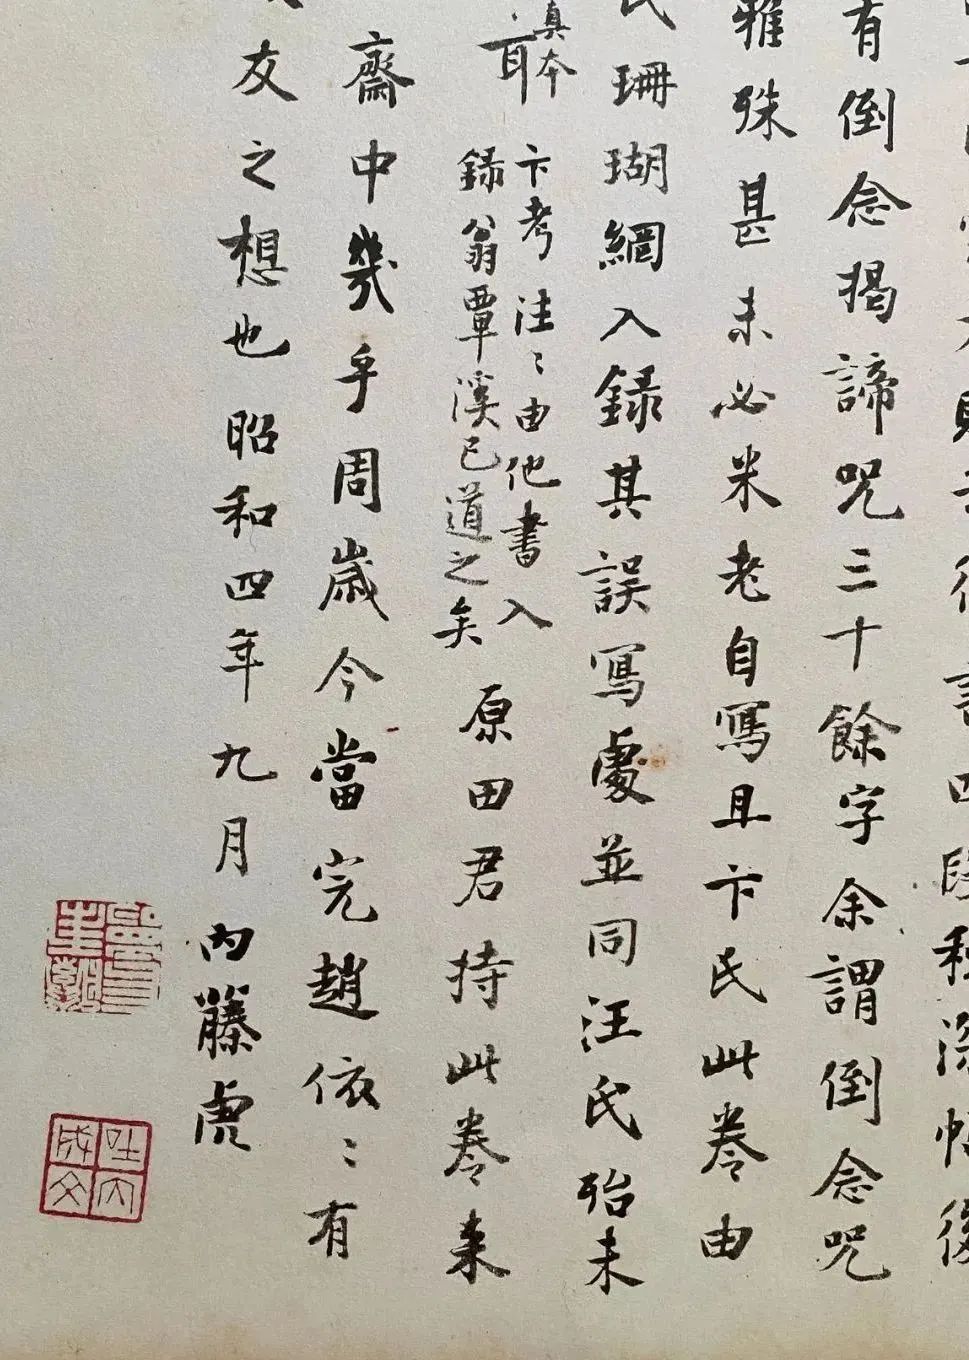 四段後
有倒念揭諦呪三十餘字余謂倒念呪
雅殊甚未必米老自寫且卞氏此卷由
氏珊瑚網入録其誤寫處並同汪氏殆未
真本
耳
卞考注〻由他書入
録翁覃溪已道之矣
原田君持此卷来
齋中幾乎周歳今當完趙依〻有
友之想也昭和四年九月内藤虎